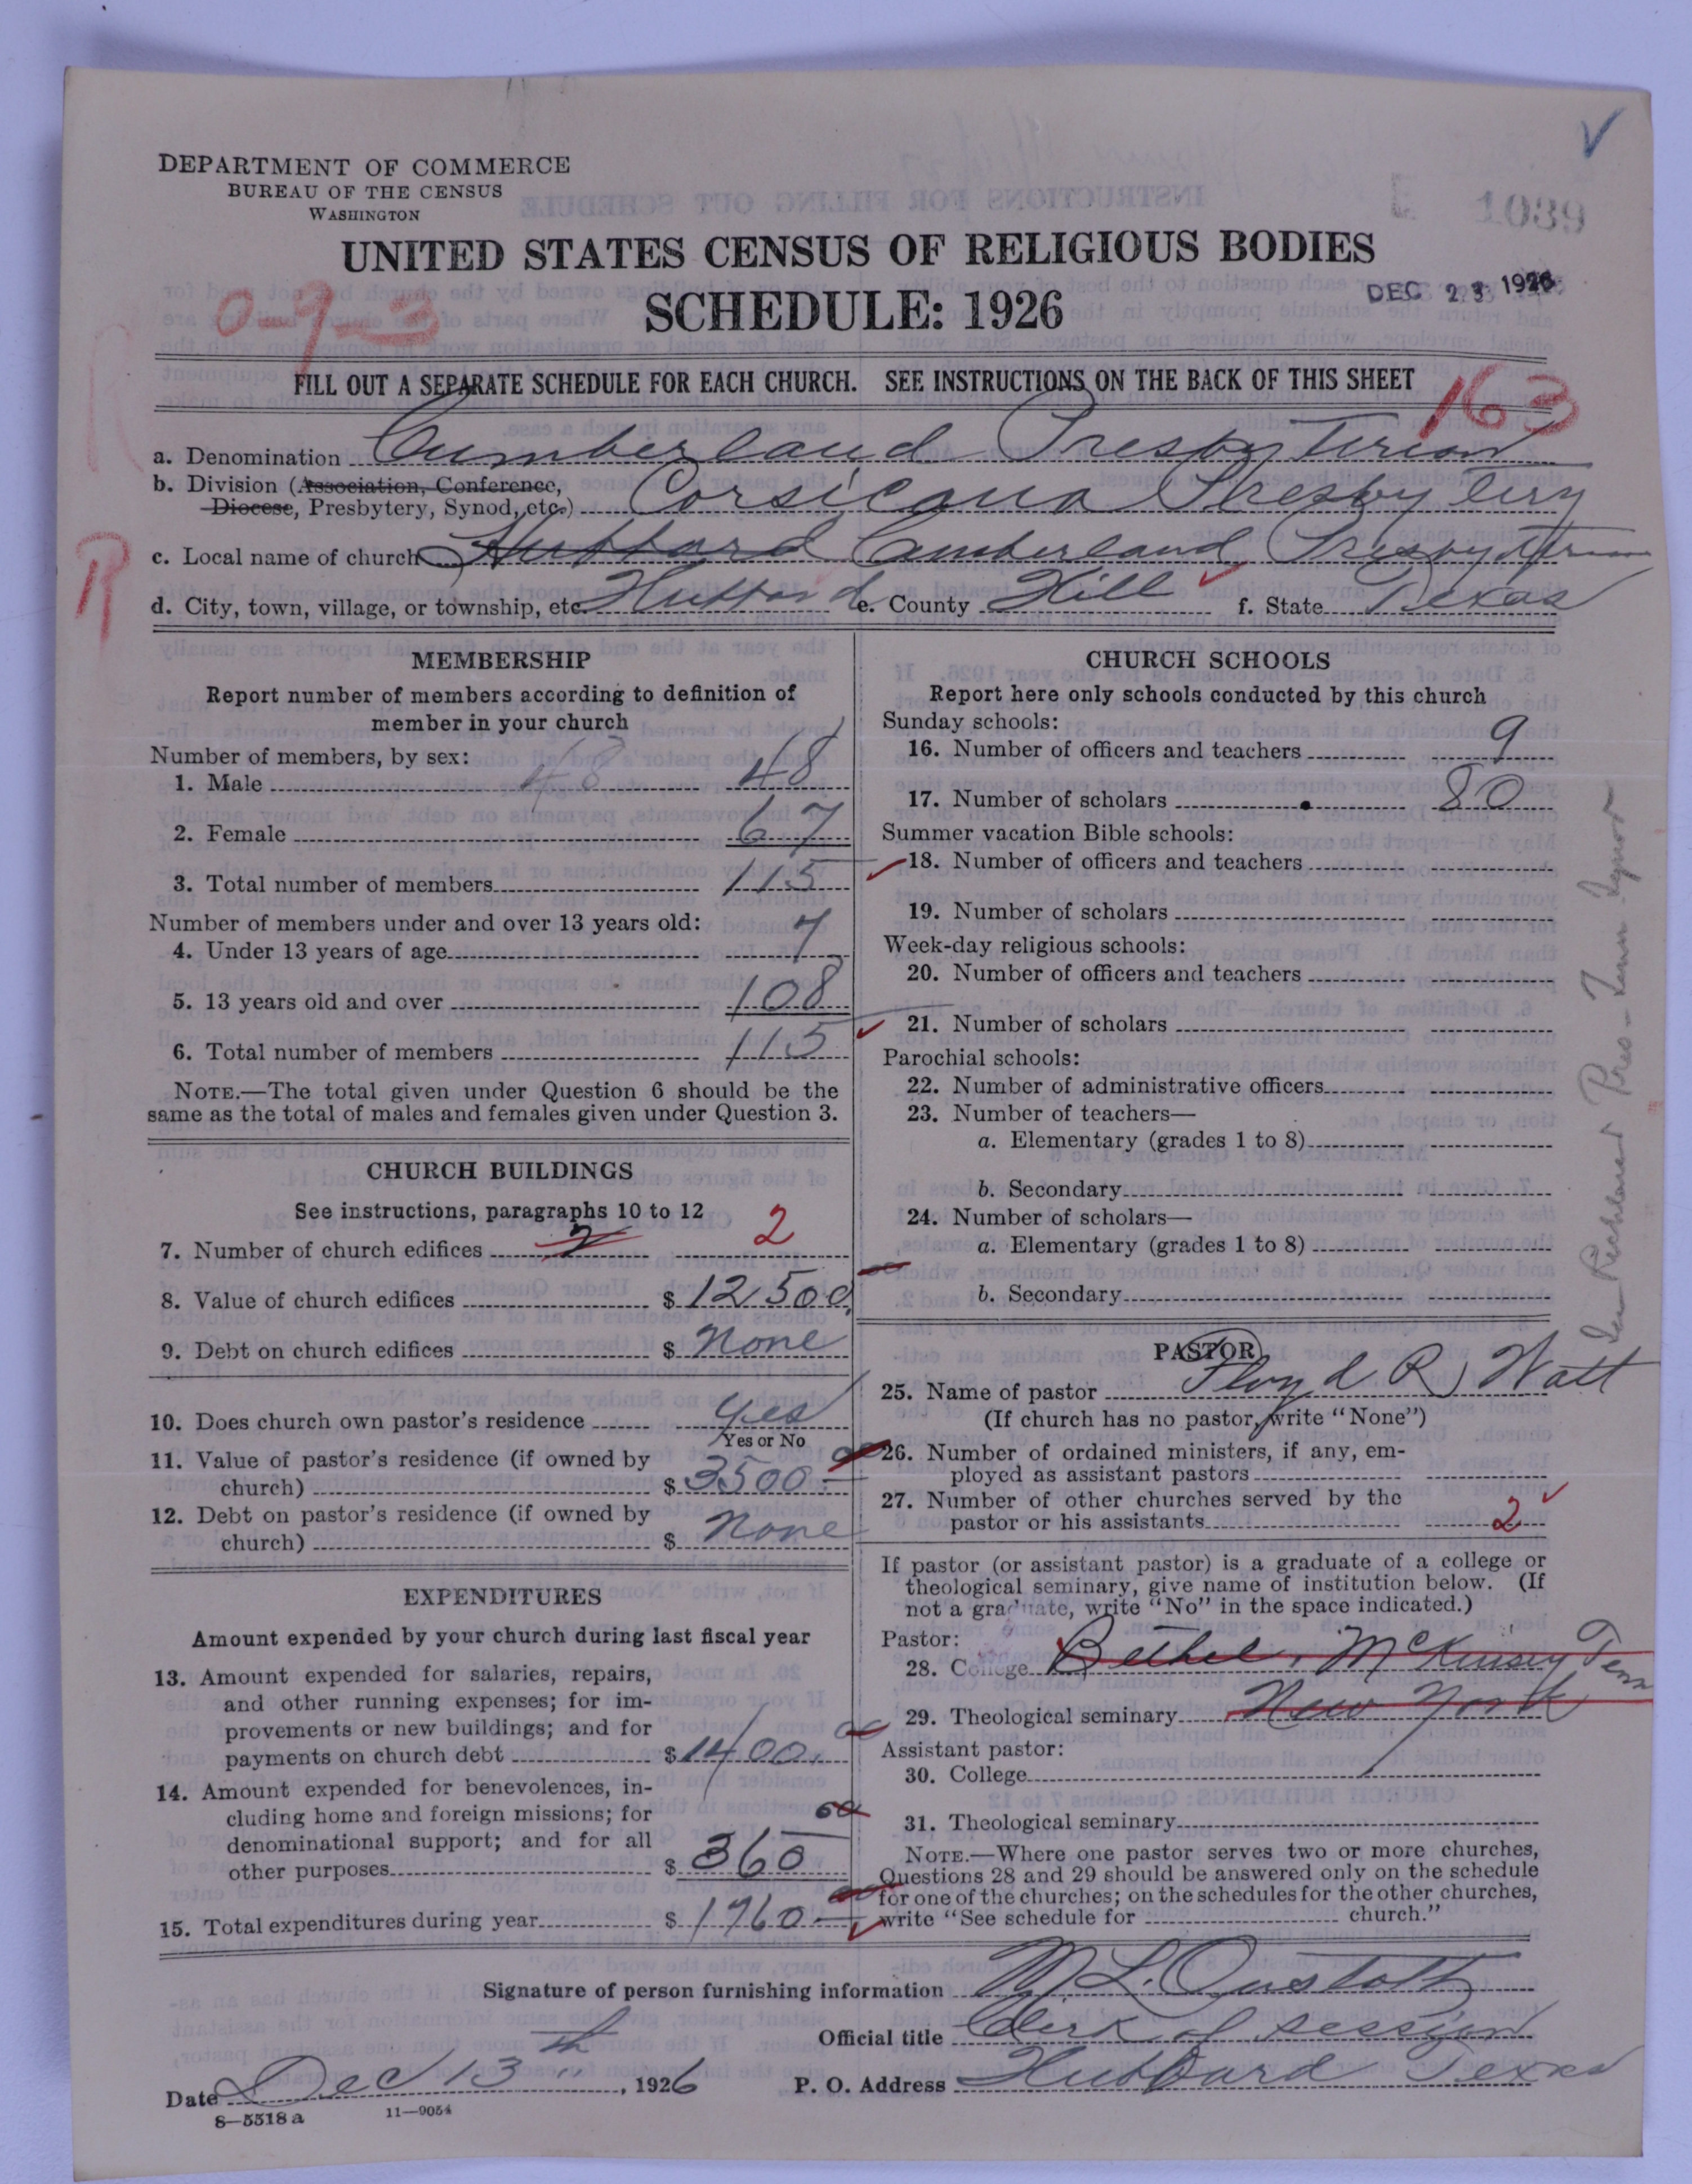 DEPARTMENT OF COMMERCE
BUREAU OF THE CENSUS
WASHINGTON
1039
UNITED STATES CENSUS OF RELIGIOUS BODIES
SCHEDULE: 1926
DEC 23 1926
0-9-3
FILL OUT A SEPARATE SCHEDULE FOR EACH CHURCH. SEE INSTRUCTIONS ON THE BACK OF THIS SHEET
163
a. Denomination Cumberland Presbyterian
b. Division (Association, Conference,
Diocese, Presbytery, Synod, etc.) Corsicana Presbytery
c. Local name of church Hubbard Cumberland Presbyterian
d. City, town, village, or township, etc. Hubbard e. County Hill f. State Texas
R
MEMBERSHIP
Report number of members according to definition of
member in your church
Number of members, by sex:
1. Male 48 48
2. Female 67
3. Total number of members 115
Number of members under and over 13 years old:
4. Under 13 years of age 7
5. 13 years old and over 108
6. Total number of members 115
NOTE.—The total given under Question 6 should be the
same as the total of males and females given under Question 3.
CHURCH BUILDINGS
See instructions, paragraphs 10 to 12
7. Number of church edifices 2 2
8. Value of church edifices $ 12,500
9. Debt on church edifices $ None
10. Does church own pastor's residence Yes
Yes or No
11. Value of pastor's residence (if owned by
church) $ 3500
12. Debt on pastor's residence (if owned by
church) $ None
EXPENDITURES
Amount expended by your church during last fiscal year
13. Amount expended for salaries, repairs,
and other running expenses; for im-
provements or new buildings; and for
payments on church debt $ 1400
14. Amount expended for benevolences, in-
cluding home and foreign missions; for
denominational support; and for all
other purposes $ 360
15. Total expenditures during year $ 1760
CHURCH SCHOOLS
Report here only schools conducted by this church
Sunday schools:
16. Number of officers and teachers 9
17. Number of scholars 80
Summer vacation Bible schools:
18. Number of officers and teachers
19. Number of scholars
Week-day religious schools:
20. Number of officers and teachers
21. Number of scholars
Parochial schools:
22. Number of administrative officers
23. Number of teachers—
a. Elementary (grades 1 to 8)
b. Secondary
24. Number of scholars—
a. Elementary (grades 1 to 8)
b. Secondary
PASTOR
25. Name of pastor Floyd R Watt
(If church has no pastor, write "None")
26. Number of ordained ministers, if any, em-
ployed as assistant pastors
27. Number of other churches served by the
pastor or his assistants 2
If pastor (or assistant pastor) is a graduate of a college or
theological seminary, give name of institution below. (If
not a graduate, write "No" in the space indicated.)
Pastor:
28. College Bethel, McKinsey Tenn
29. Theological seminary New York
Assistant pastor:
30. College
31. Theological seminary
NOTE.—Where one pastor serves two or more churches,
Questions 28 and 29 should be answered only on the schedule
for one of the churches; on the schedules for the other churches,
write "See schedule for church."
Signature of person furnishing information M L.
Official title Clerk of session
Date Dec 13th, 1926 P. O. Address Hubbard Texas
8—5518 a 11—9054
Richland Pres - Tenn Synod